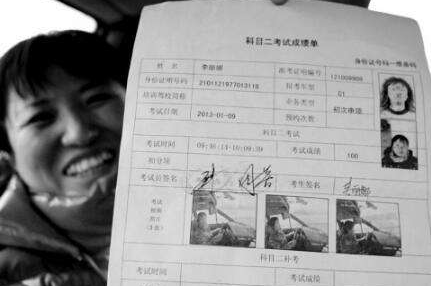 科目二考试成绩单
身份证号码一维条码
姓名 李丽娜 准考证明编号 121009909
身份证明号码 报考车型 C1
培训驾校简称 业务类型 初次申领
考试日期 2013-01-09 预约次数
科目二考试
考试时间 考试成绩 100
扣分项
考试员签名 考生签名 李丽娜
考试
视频
照片
(3张)
科目二补考
考试时间 考试成绩